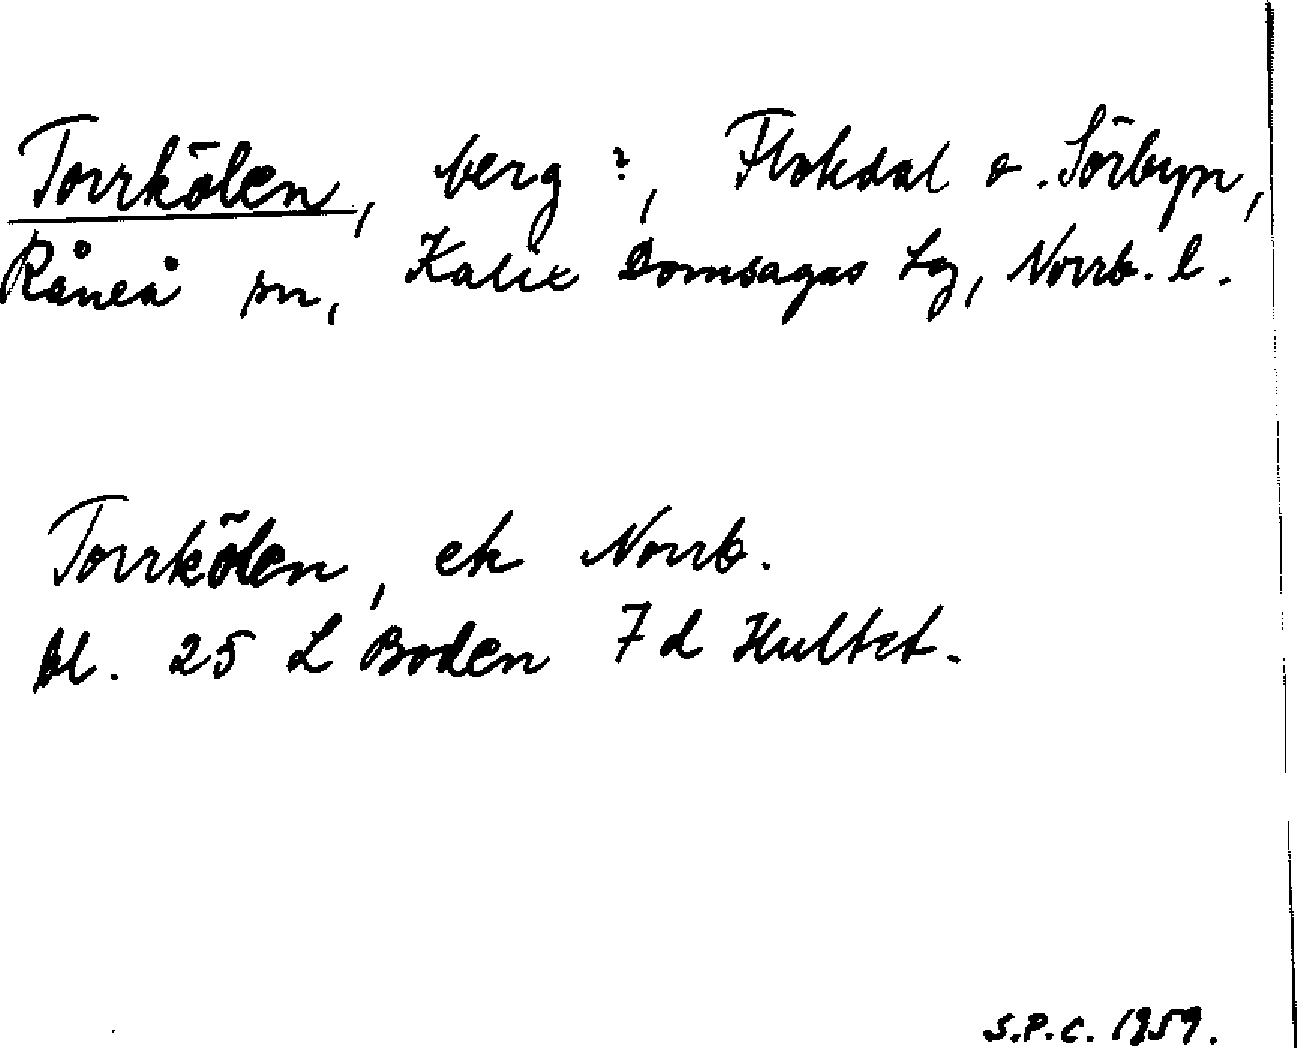 Torrkölen, berg?, Flakdal o. Sörbyn,
Råneå sn, Kalix Domsagas tg, Norrb. l.
Torrkölen, ek Norrb.
bl. 25 L Boden 7 d Hultet.
S.P.C. 1959.